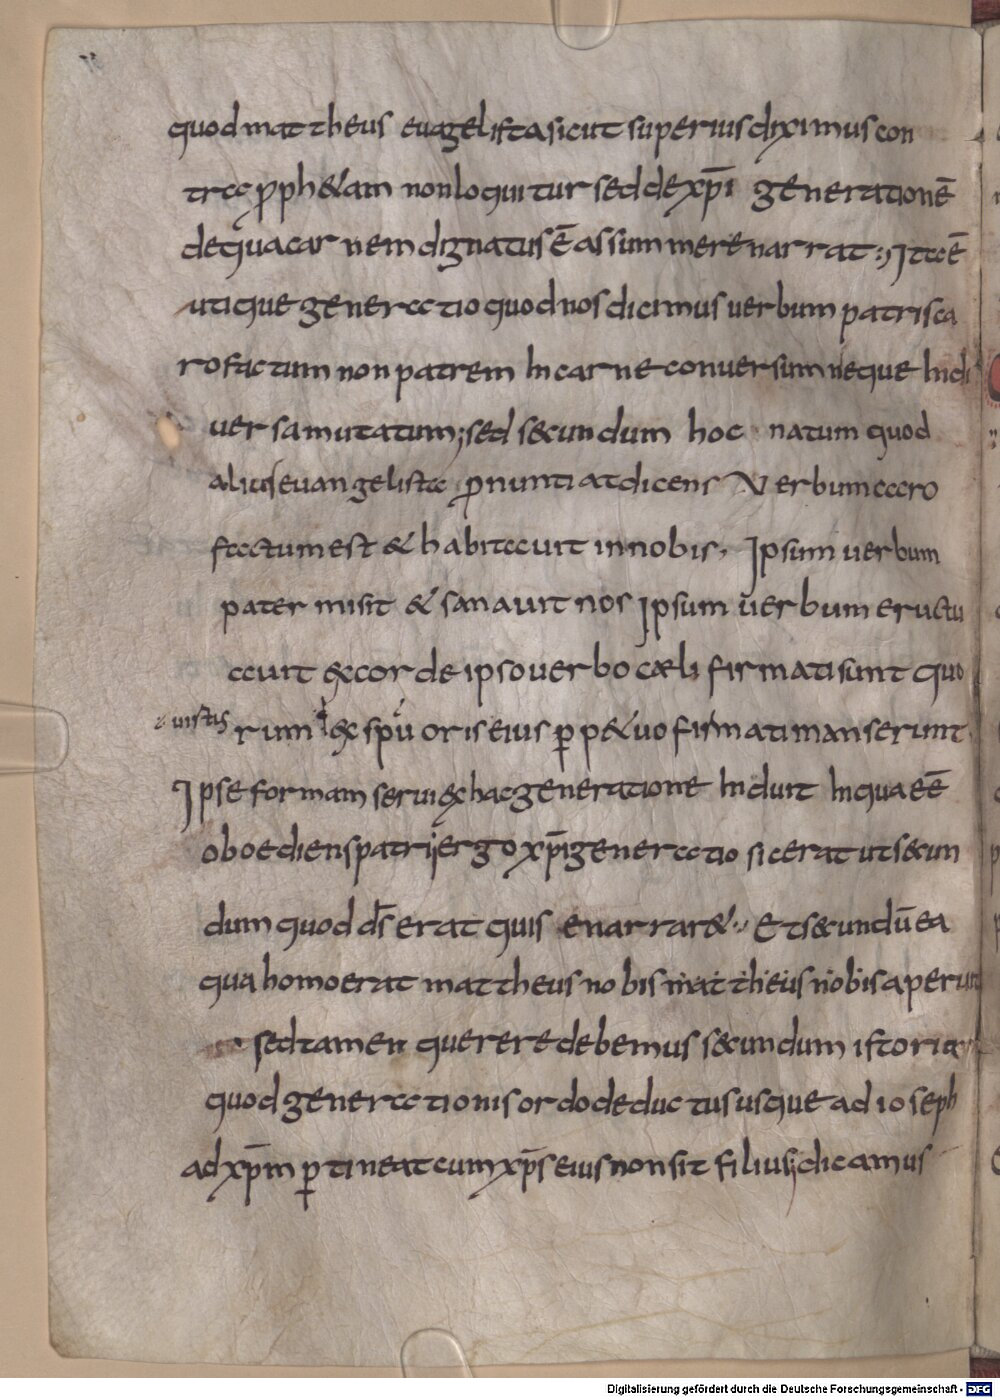 quod mattheus euagelista sicut superius diximus con
tra ꝓph&am non loquitur sed de xp̄i generationē
de qua carnem dignatus ē assummere narrat; Ita ē
utique generatio quod nos dicimus uerbum patris ca
ro factum non patrem in carne conuersum neque in di
uersa mutatum; sed secundum hoc natum quod
alius euangelista ꝓnuntiat dicens Verbum caro
factum est & habitauit in nobis, Ipsum uerbum
pater misit & sanauit nos Ipsum uerbum eructu
auit ex corde ipso uerbo cæli firmati sunt quo
uirstis rum ex spū oris eius ꝑp&uo firmati manserunt
Ipse formam serui ex hac generatione induit in qua eē
oboediens patri; ergo xp̄i generatio sic erat ut secun
dum quod d̄s erat quis enarrar& Et secundū ea
qua homo erat mattheus nobis mattheus nobis aperuit
sed tamen querere debemus secundum istoriam
quod generationis ordo deductus usque ad ioseph
ad xp̄m ꝑtineat cum xp̄s eius non sit filius; dicamus
Digitalisierung gefördert durch die Deutsche Forschungsgemeinschaft - DFG